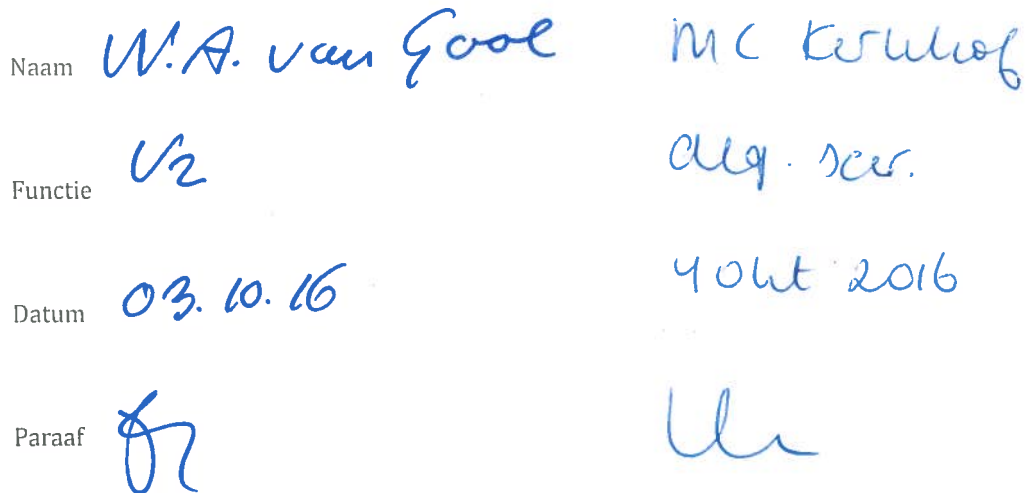 Naam W.A. van Gool MC Kerkhof
Functie Vz alg. secr.
Datum 03.10.16 4 okt 2016
Paraaf